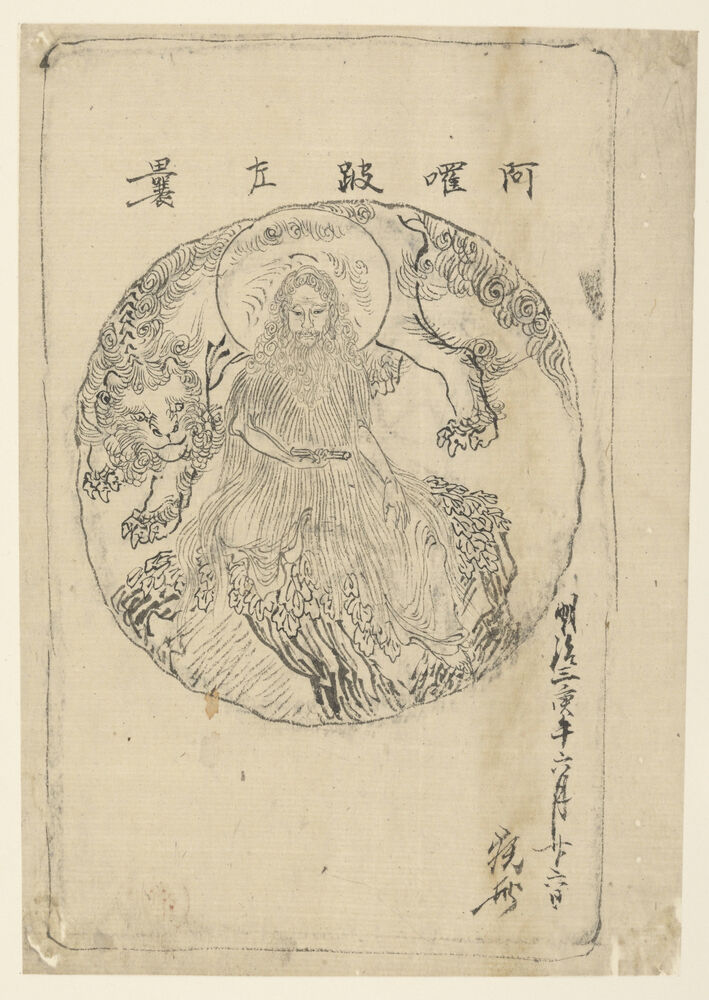 阿囉跛左曩
明治三庚午六月廿六日